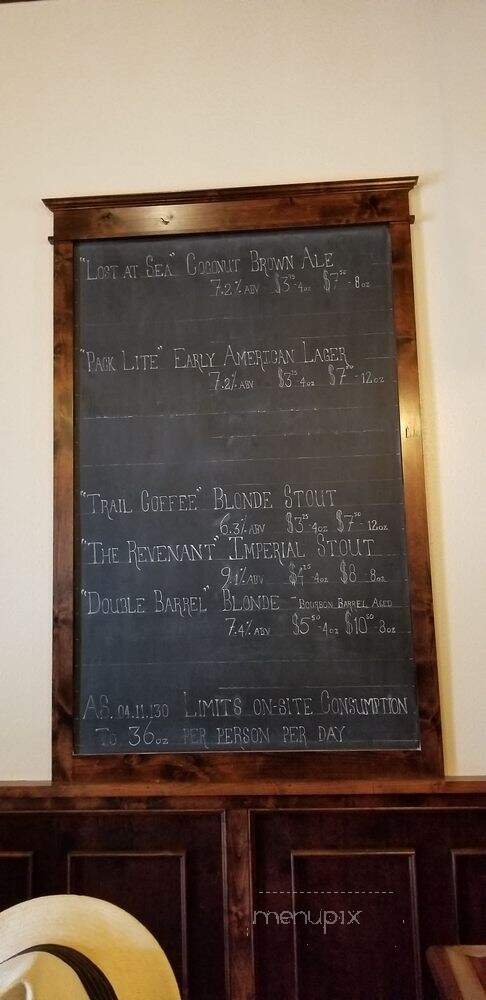 "Lost at Sea" Coconut Brown Ale
7.2% ABV $3.75-4oz $7.50-8oz
"Pack Lite" Early American Lager
7.2% ABV $3.75-4oz $7.50-12oz
"Trail Coffee" Blonde Stout
6.3% ABV $3.25-4oz $7.50-12oz
"The Revenant" Imperial Stout
9.1% ABV $4.25-4oz $8-8oz
"Double Barrel" Blonde -Bourbon Barrel Aged
7.4% ABV $5.50-4oz $10.50-8oz
AS. 04.11.130 Limits on-site Consumption
To 36oz per person per day
menupix